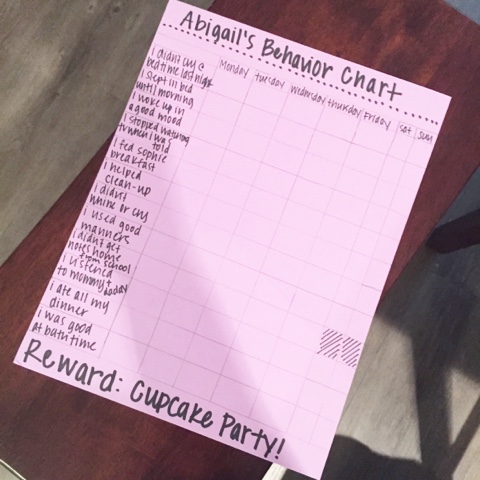 Abigail's Behavior Chart
Monday Tuesday Wednesday Thursday Friday Sat Sun
I didn't cry @
bedtime last night
I slept in bed
until morning
I woke up in
a good mood
I stopped watching
tv when I was
told
I fed Sophie
breakfast
I helped
clean-up
I didn't
whine or cry
I used good
manners
I didn't get
notes home
from school
I listened
to mommy + daddy
I ate all my
dinner
I was good
at bathtime
Reward: Cupcake Party!